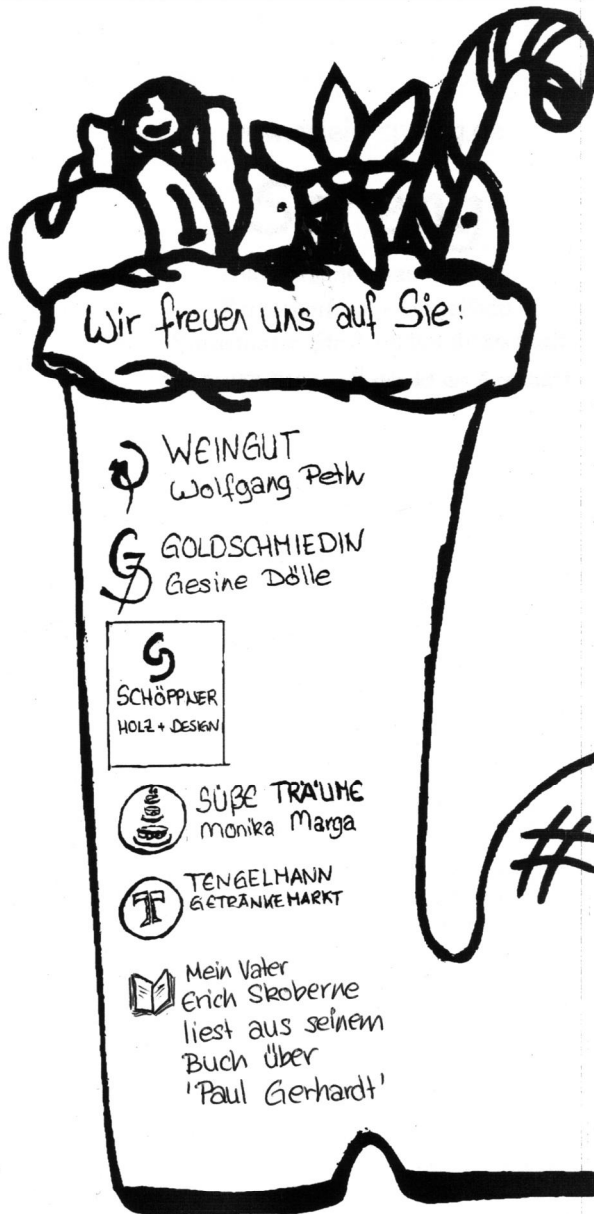 Wir freuen uns auf Sie:
WEINGUT
Wolfgang Peth
GOLDSCHMIEDIN
Gesine Dölle
SCHÖPPNER
HOLZ + DESIGN
SÜßE TRÄUME
Monika Marga
T
TENGELMANN
GETRÄNKEMARKT
Mein Vater
Erich Skoberne
liest aus seinem
Buch über
'Paul Gerhardt'